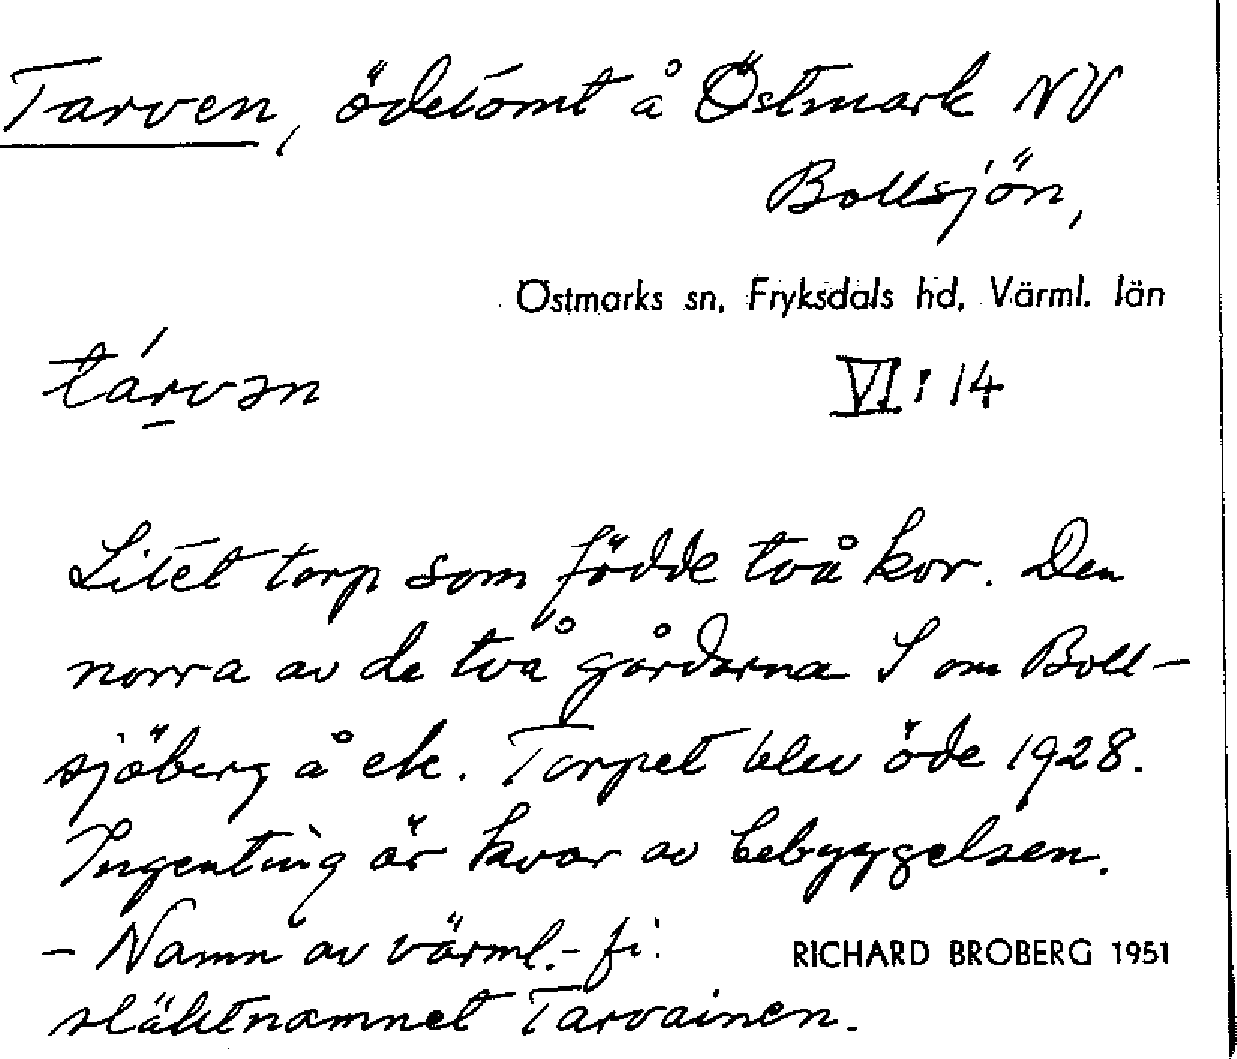 Tarven, ödetomt å Östmark NV
Bollsjön,
Östmarks sn, Fryksdals hd, Värml. län
tárvən
VI: 14
Litet torp som födde två kor. Den
norra av de två gårdarna S om Boll-
sjöberg å ek. Torpet blev öde 1928.
Ingenting är kvar av bebyggelsen.
- Namn av värml.- fi.
RICHARD BROBERG 1951
släktnamnet Tarvainen.